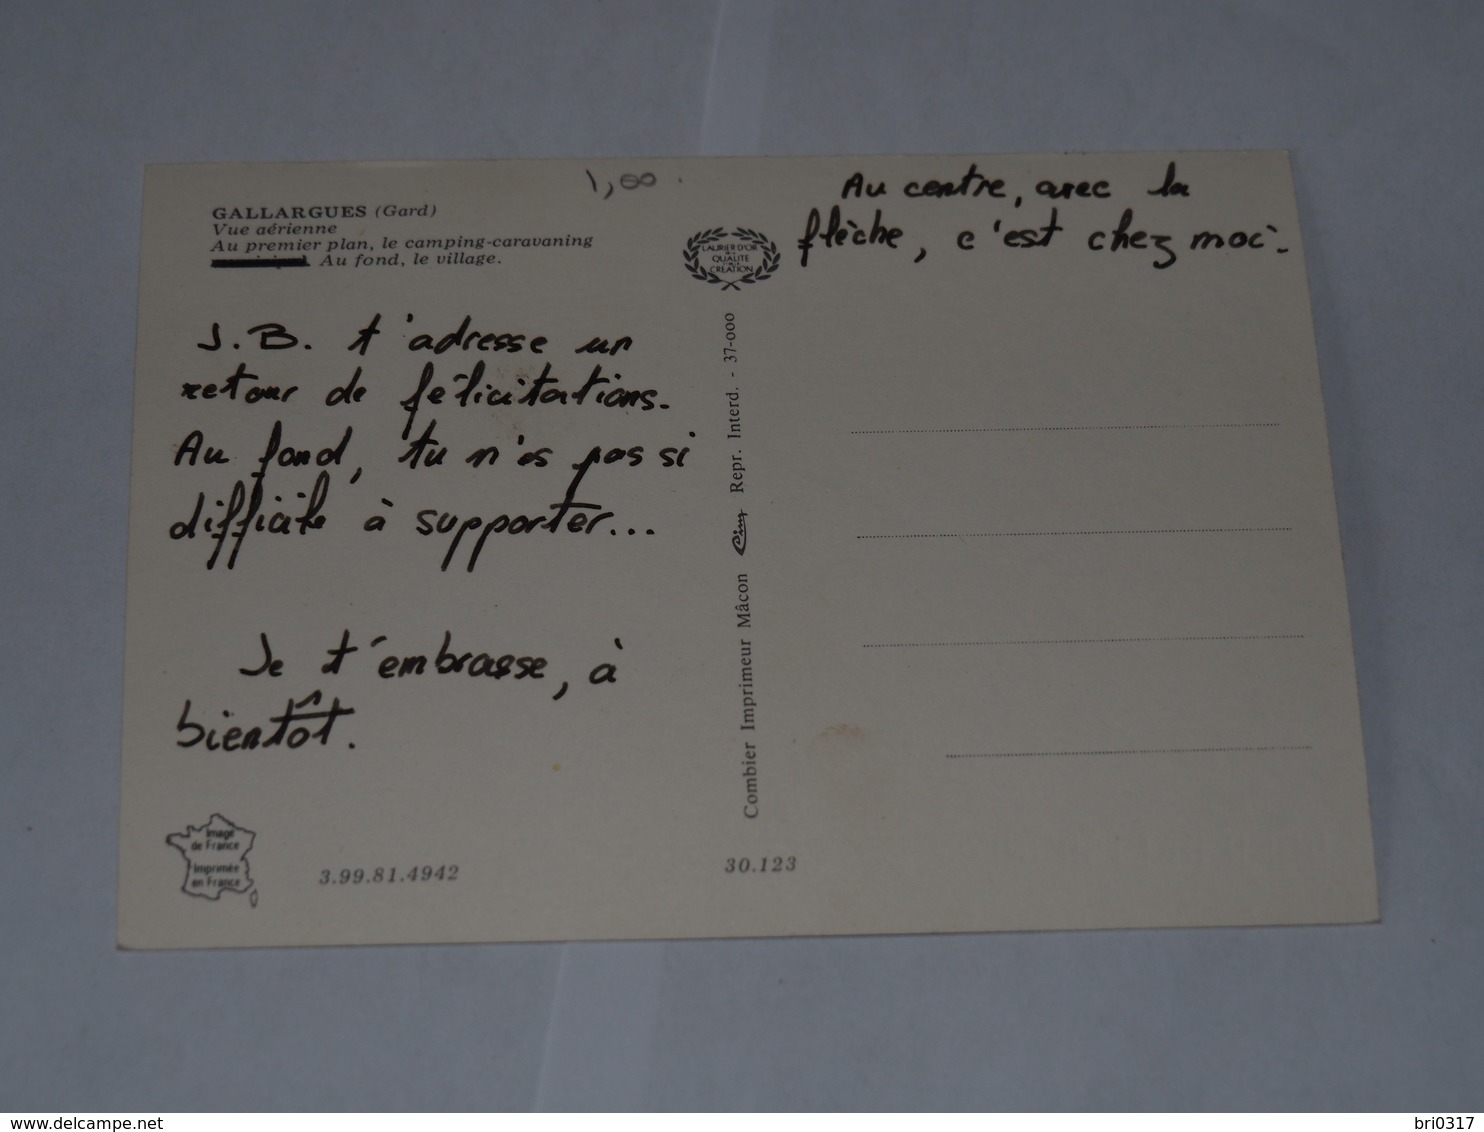 1,00
GALLARGUES (Gard)
Vue aérienne
Au premier plan, le camping-caravaning
Au fond, le village.
J.B. t'adresse un
retour de félicitations.
Au fond, tu n'es pas si
difficile à supporter...
Je t'embrasse, à
bientôt.
Image
de France
Imprimée
en France
3.99.81.4942
LAURIER D'OR
DE LA
QUALITÉ
CRÉATION
Combier Imprimeur Mâcon Cim Repr. Interd. - 37-000
30.123
Au centre, avec la
flèche, c'est chez moi.
delcampe.net
bri0317